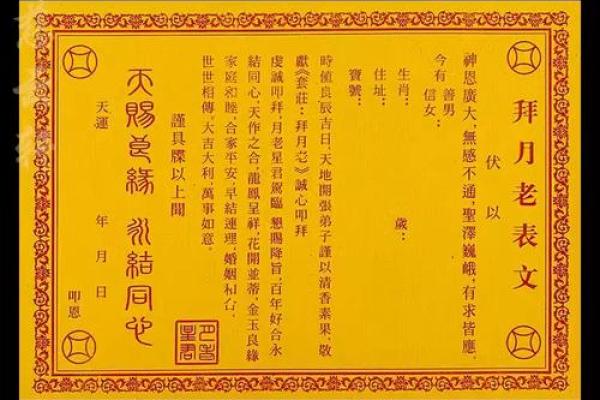 拜月老表文
伏以
神恩廣大，無感不通，聖澤巍峨，有求皆應。
今有 善男 信女：
生肖： 歲：
住址：
寶號：
時值良辰吉日，天地開張弟子謹以清香素果，敬
獻《套莊：拜月老》誠心叩拜
虔誠叩拜，月老星君駕臨 懇賜降旨，百年好合永
結同心，天作之合，龍鳳呈祥，花開並蒂，金玉良緣
家庭和睦，合家平安，早結連理，婚姻和合，
世世相傳。大吉大利，萬事如意。
謹具牒以上聞
天賜良緣 永結同心
天運 年 月 日
叩恩
月老星君